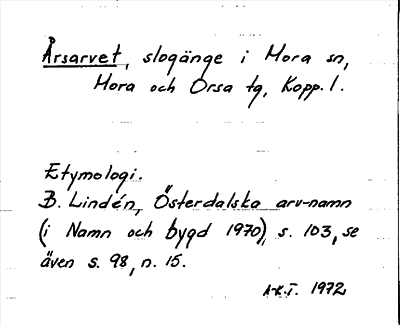 Årsarvet, slogänge i Mora sn,
Mora och Orsa tg, Kopp. l.
Etymologi.
B. Lindén, Österdalska arv-namn
(i Namn och bygd 1970), s. 103, se
även s. 98, n. 15.
A-K.T. 1972